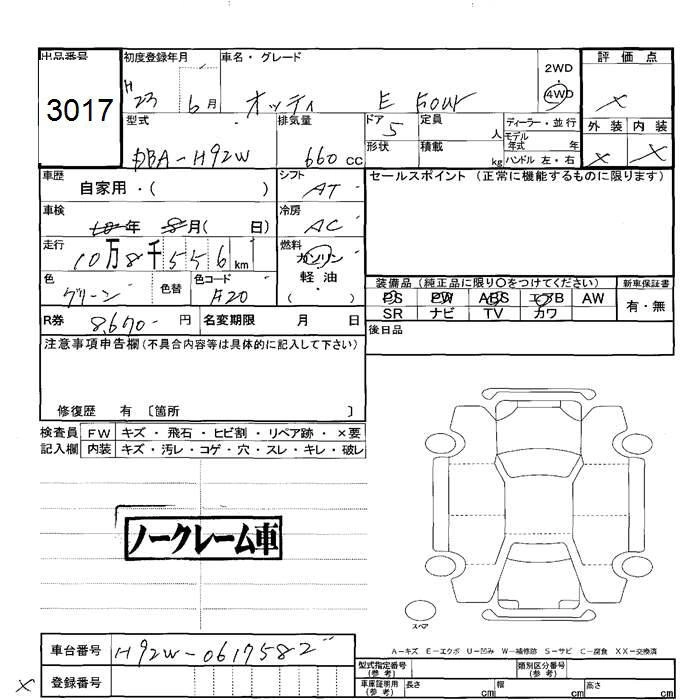 出品番号 初度登録年月 車名・グレード 評価点
2WD
3017 H 23 6月 オッティ E FOUR 4WD ×
型式 排気量 ドア 定員 ディーラー・並行 外装 内装
5 人 モデル年式 年
DBA-H92W 660cc 形状 積載 kg ハンドル 左・右 × ×
車歴 自家用・( ) シフト AT セールスポイント (正常に機能するものに限ります)
車検 年 8月( 日) 冷房 AC
走行 10万8千556km 燃料 ガソリン
軽油
( )
色 グリーン 色替 色コード F20
装備品 (純正品に限り○をつけてください) 新車保証書
PS PW ABS エアB AW 有・無
SR ナビ TV カワ
R券 8,670- 円 名変期限 月 日 後日品
注意事項申告欄(不具合内容等は具体的に記入して下さい)
修復歴 有 〔箇所 〕
検査員 FW キズ・飛石・ヒビ割・リペア跡・×要
記入欄 内装 キズ・汚レ・コゲ・穴・スレ・キレ・破レ
ノークレーム車
スペア
A-キズ E-エクボ U-凹み W-補修跡 S-サビ C-腐食 XX-交換済
車台番号 H92W-0617582
型式指定番号(参考) 類別区分番号(参考)
× 登録番号 車庫証明用(参考) 長さ cm 幅 cm 高さ cm